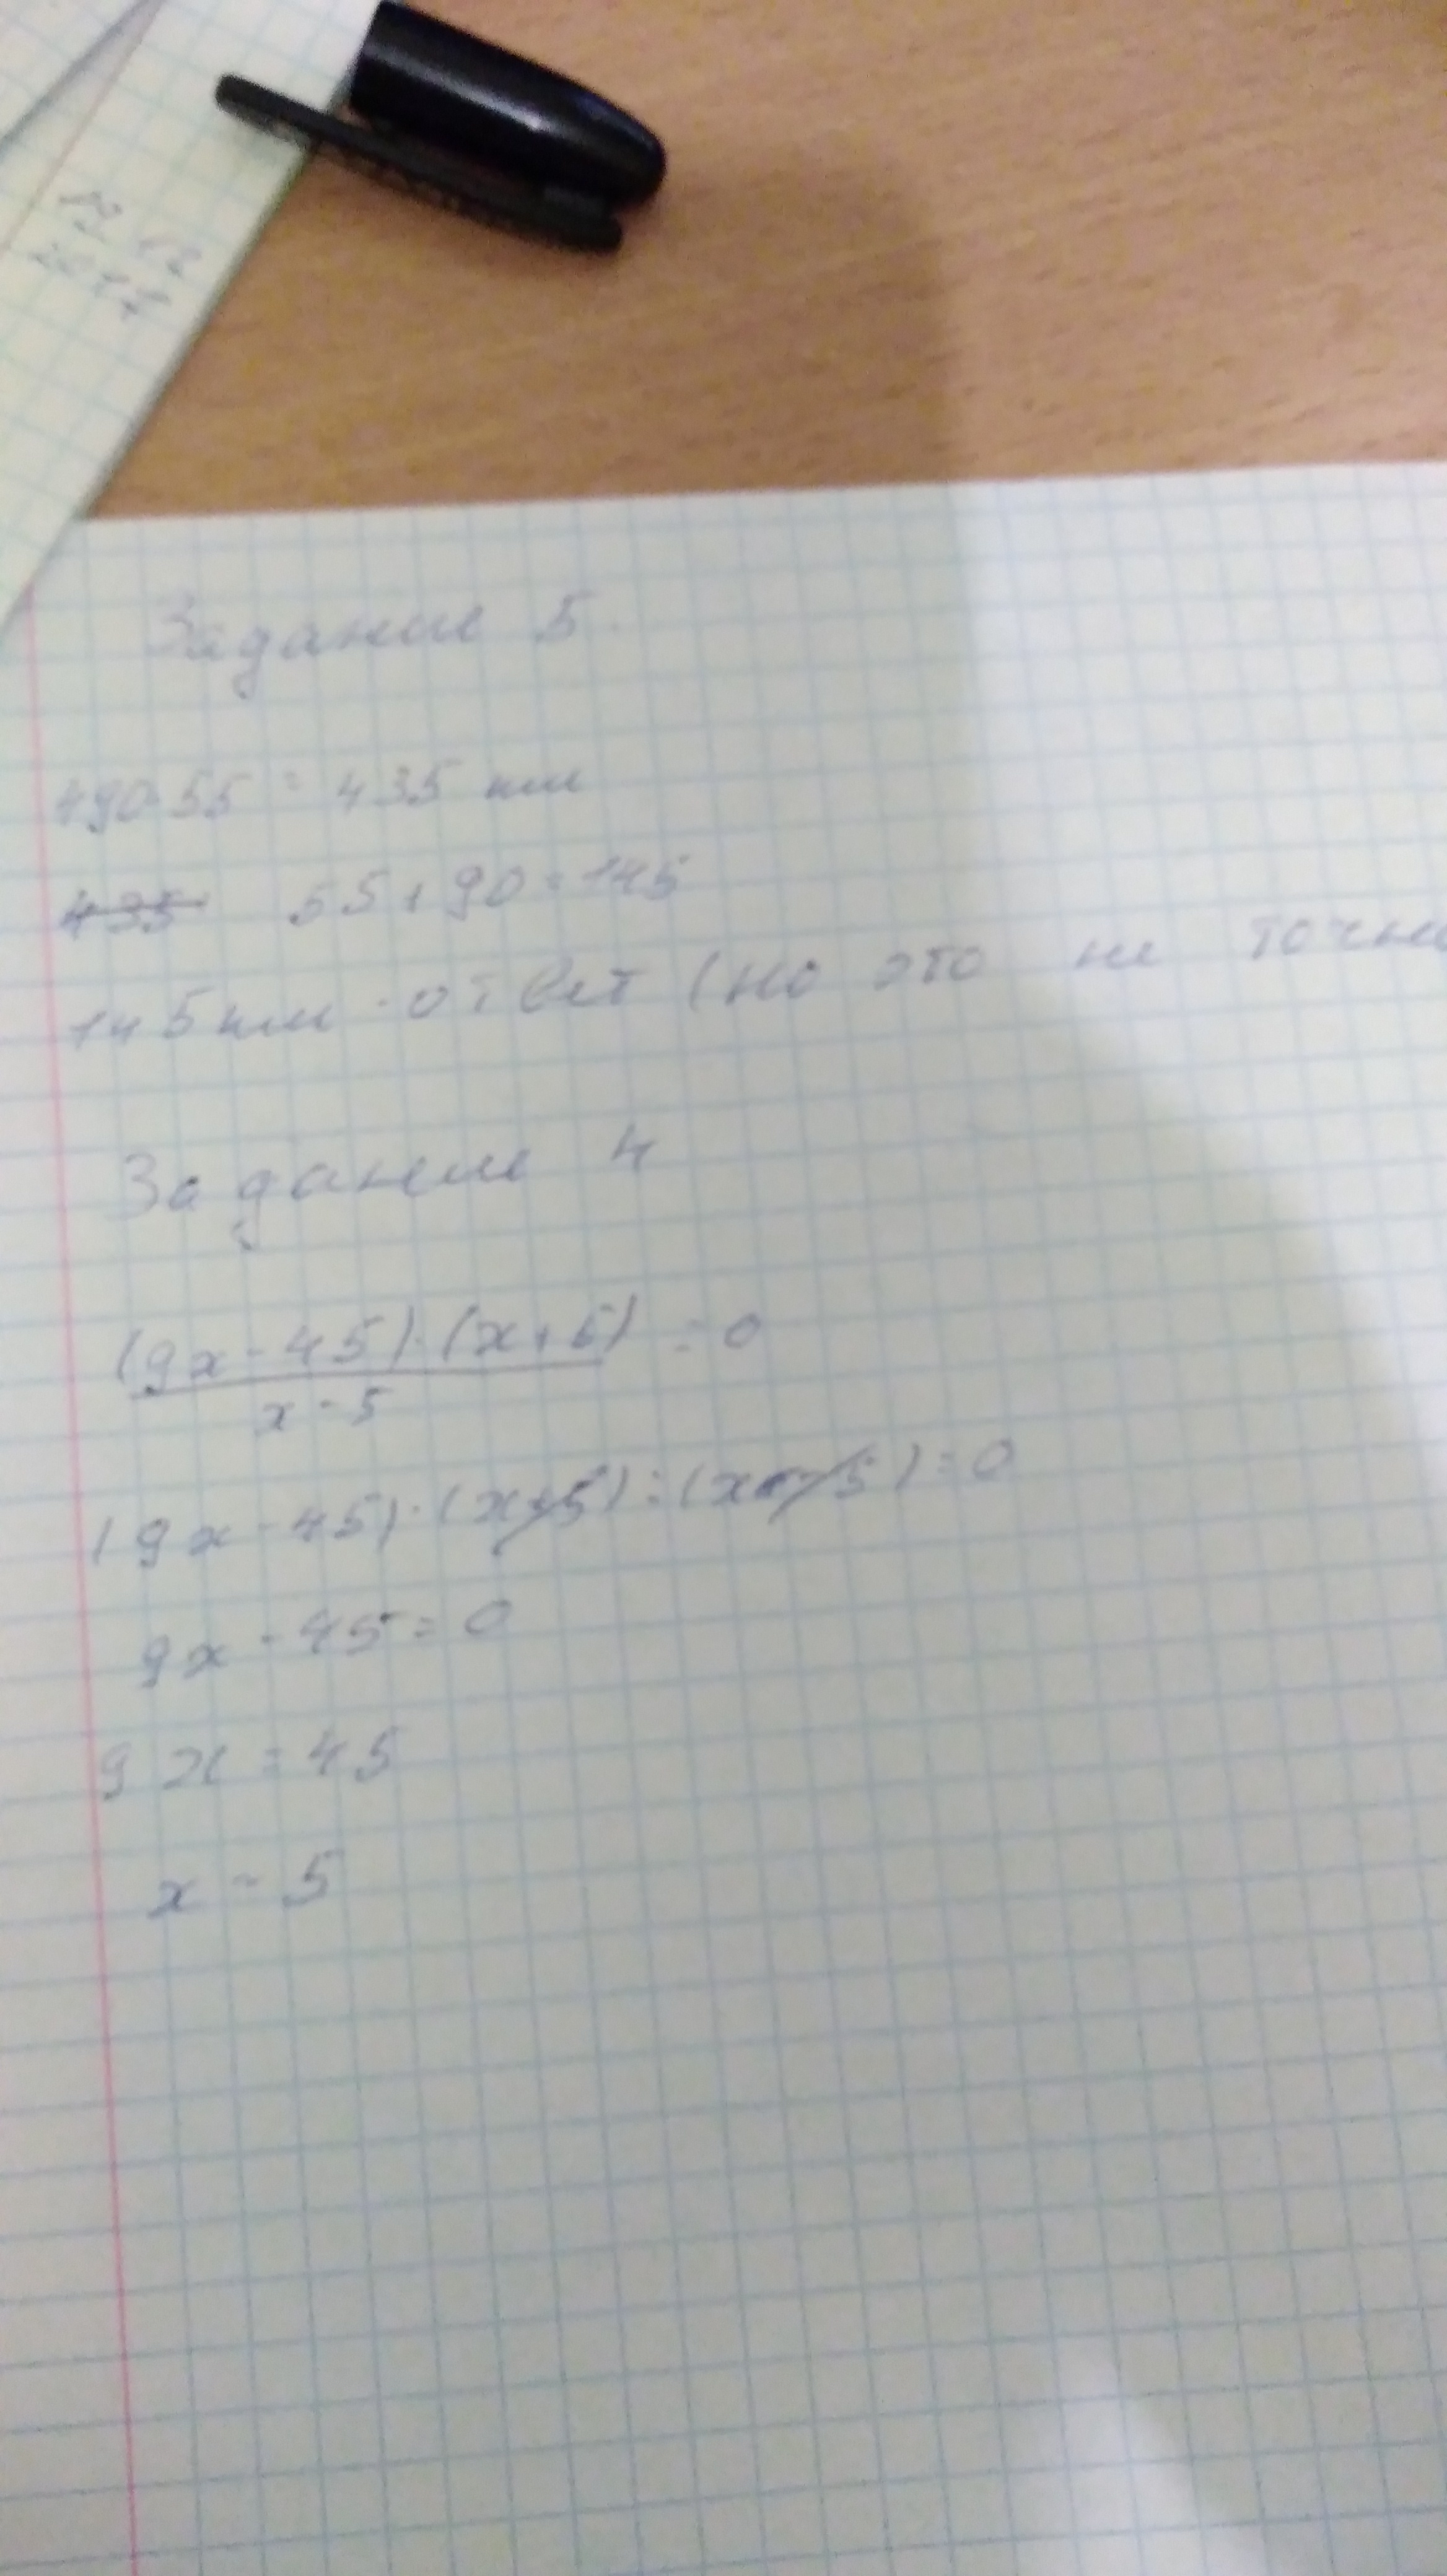 Задание 5.
490-55 = 435 км
435 55+90=145
145 км - ответ (но это не точно
Задание 4
(9x-45)·(x+5) = 0
x-5
(9x-45)·(x+5):(x-5)=0
9x-45=0
9x=45
x=5